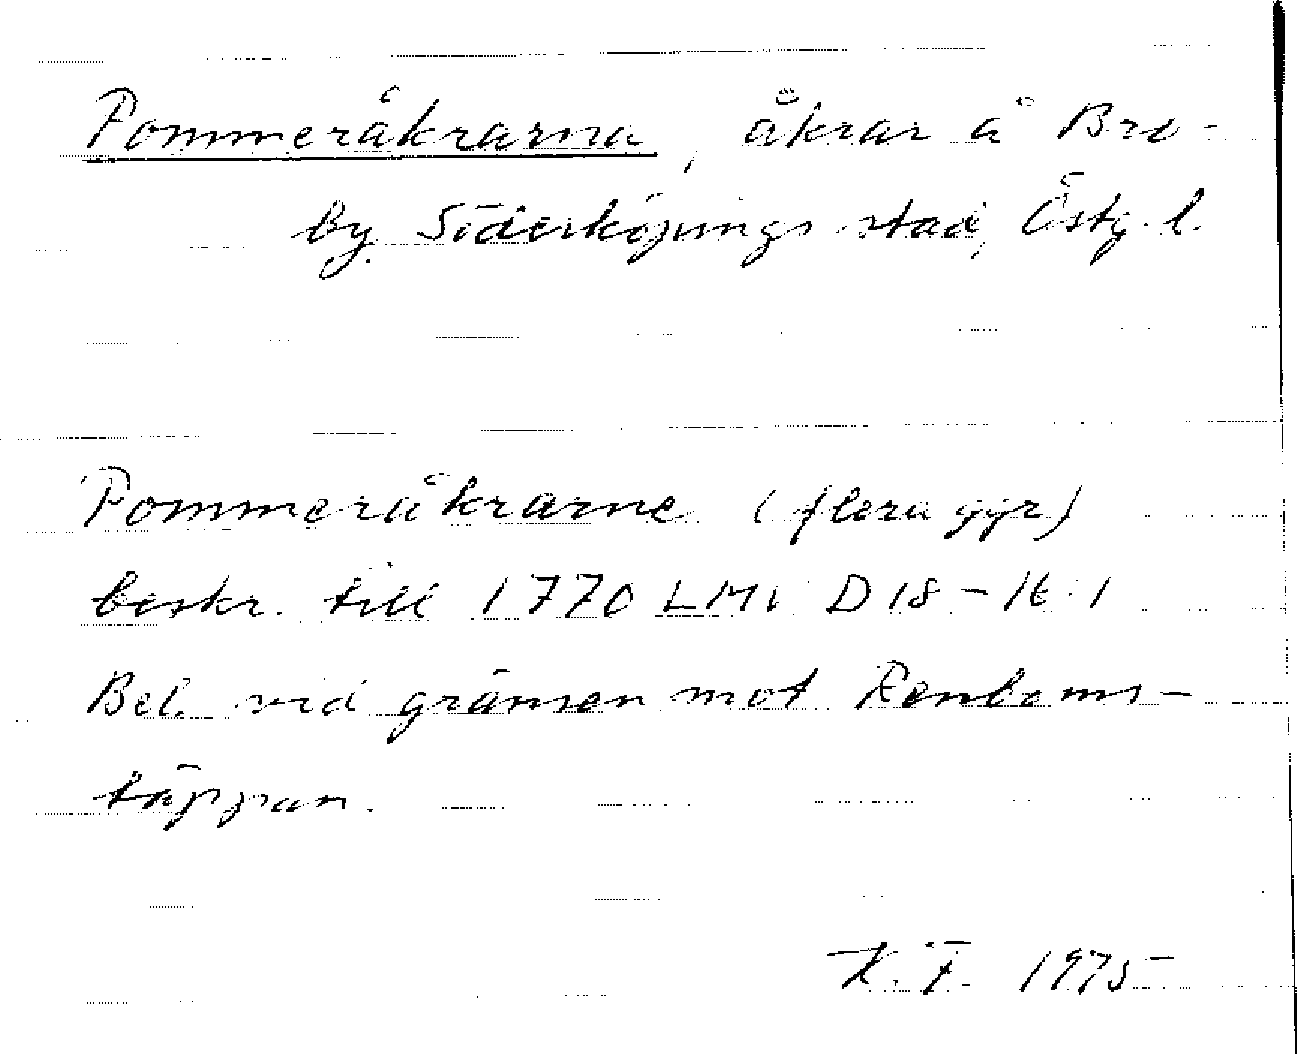 Pommeråkrarna, åkrar å Bro-
by Söderköpings stad, Östg. l.
Pommeråkrarne (flera ggr)
beskr. till 1770 LMV D 18-16:1
Bel. vid gränsen mot Renboms-
täppan.
K.F. 1975